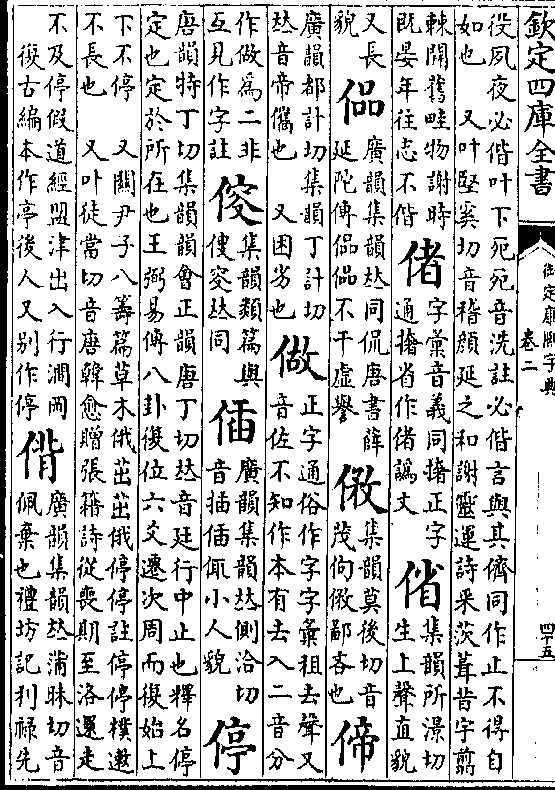 欽定四庫全書
御定康熙字典 卷二 四十五
役夙夜必偕叶下死死音洗註必偕言與其儕同作止不得自
如也 又叶堅奚切音稽顔延之和謝靈運詩釆茨葺昔宇翦
棘開舊畦物謝時
既晏年往志不偕
偖
字彙音義同撦正字
通撦省作偖譌文
偗
集韻所景切
生上聲直貌
又長
貌
偘
廣韻集韻𠀤同侃唐書薛
延陀傳偘偘不干虛譽
集韻莫後切音
茂佝鄙吝也
偙
廣韻都計切集韻丁計切
𠀤音帝儶也 又困劣也
做
正字通俗作字字彙租去聲又
音佐不知作本有去入二音分
作做為二非
互見作字註
集韻類篇與
傁叜𠀤同
偛
廣韻集韻𠀤側洽切
音插偛㑌小人貌
停
唐韻特丁切集韻韻會正韻唐丁切𠀤音廷行中止也釋名停
定也定於所在也王弼易傳八卦復位六爻遷次周而復始上
下不停 又關尹子八籌篇草木俄茁茁俄停停註停停樸遫
不長也 又叶徒當切音唐韓愈贈張籍詩從喪期至洛還走
不及停假道經盟津出入行澗岡
復古編本作亭後人又别作停
偝
廣韻集韻𠀤蒲昧切音
佩棄也禮坊記利祿先